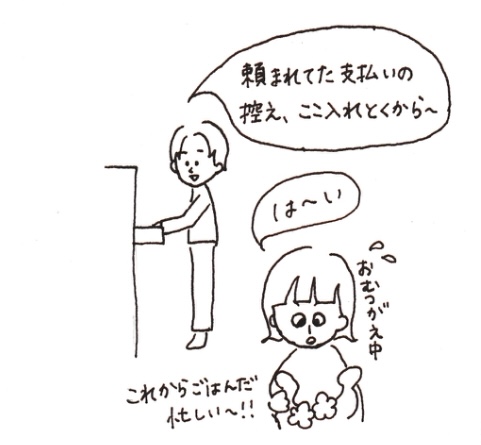 頼まれてた支払いの
控え、ここ入れとくから~
は~い
おむつがえ中
これからごはんだ
忙しい~!!